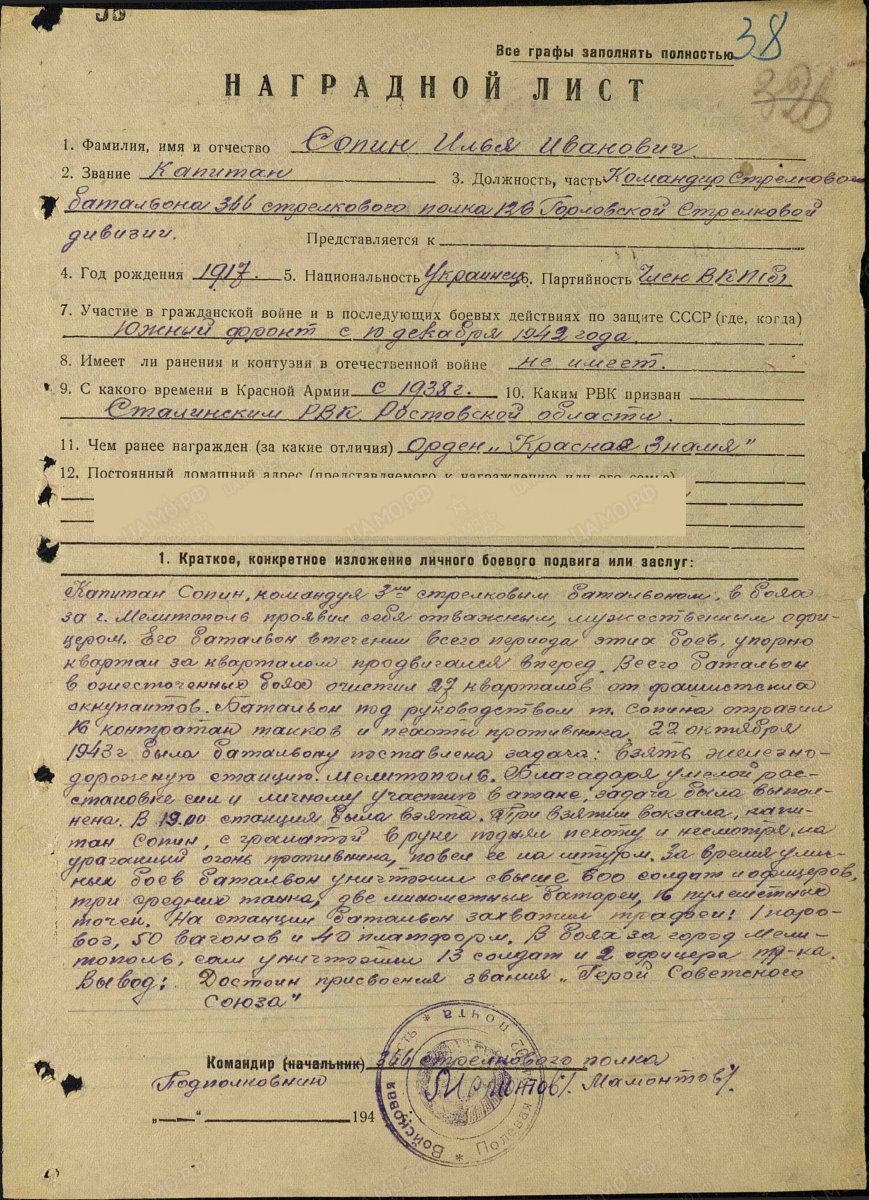 38
Все графы заполнять полностью
НАГРАДНОЙ ЛИСТ
1. Фамилия, имя и отчество Сопин Илья Иванович.
2. Звание Капитан 3. Должность, часть Командир Стрелкового
батальона 366 стрелкового полка 126 Горловской Стрелковой
дивизии. Представляется к
4. Год рождения 1917. 5. Национальность Украинец 6. Партийность Член ВКП(б)
7. Участие в гражданской войне и в последующих боевых действиях по защите СССР (где, когда)
Южный фронт с 10 декабря 1942 года.
8. Имеет ли ранения и контузии в отечественной войне не имеет.
9. С какого времени в Красной Армии с 1938 г. 10. Каким РВК призван
Сталинским РВК Ростовской области.
11. Чем ранее награжден (за какие отличия) Орден „Красная Знамя"
12. Постоянный домашний адрес (представляемого к награждению или его семьи)
1. Краткое, конкретное изложение личного боевого подвига или заслуг:
Капитан Сопин, командуя 3им стрелковым батальоном, в боях
за г. Мелитополь проявил себя отважным, мужественным офи-
цером. Его батальон втечении всего периода этих боев, упорно
квартал за кварталом продвигался вперед. Всего батальон
в ожесточенных боях очистил 27 кварталов от фашистских
оккупантов. Батальон под руководством т. Сопина отразил
16 контратак танков и пехоты противника. 22 октября
1943 г была батальону поставлена задача: взять железно-
дорожную станцию. Мелитополь. Благодаря умелой рас-
становке сил и личному участию в атаке, задача была выпол-
нена. В 19.00 станция была взята. При взятии вокзала, капи-
тан Сопин, с гранатой в руке поднял пехоту и несмотря, на
ураганный огонь противника, повел ее на штурм. За время улич-
ных боев батальон уничтожил свыше 600 солдат и офицеров,
три средних танка, две минометных батареи, 16 пулеметных
точек. На станции батальон захватил трофеи: 1 паро-
воз, 50 вагонов и 40 платформ. В боях за город Мели-
тополь, сам уничтожил 13 солдат и 2 офицера пр-ка.
Вывод: Достоин присвоения звания „Герой Советского
Союза"
Командир (начальник) 366 стрелкового полка
Подполковник /Мамонтов/.
„ “ 194
Войсковая часть * Полевая почта *